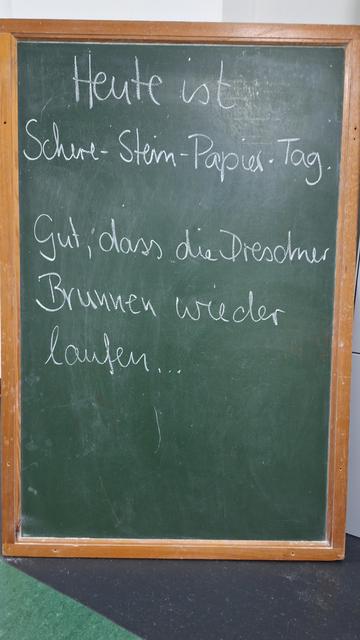 Heute ist
Schere-Stein-Papier-Tag.
Gut, dass die Dresdner
Brunnen wieder
laufen...